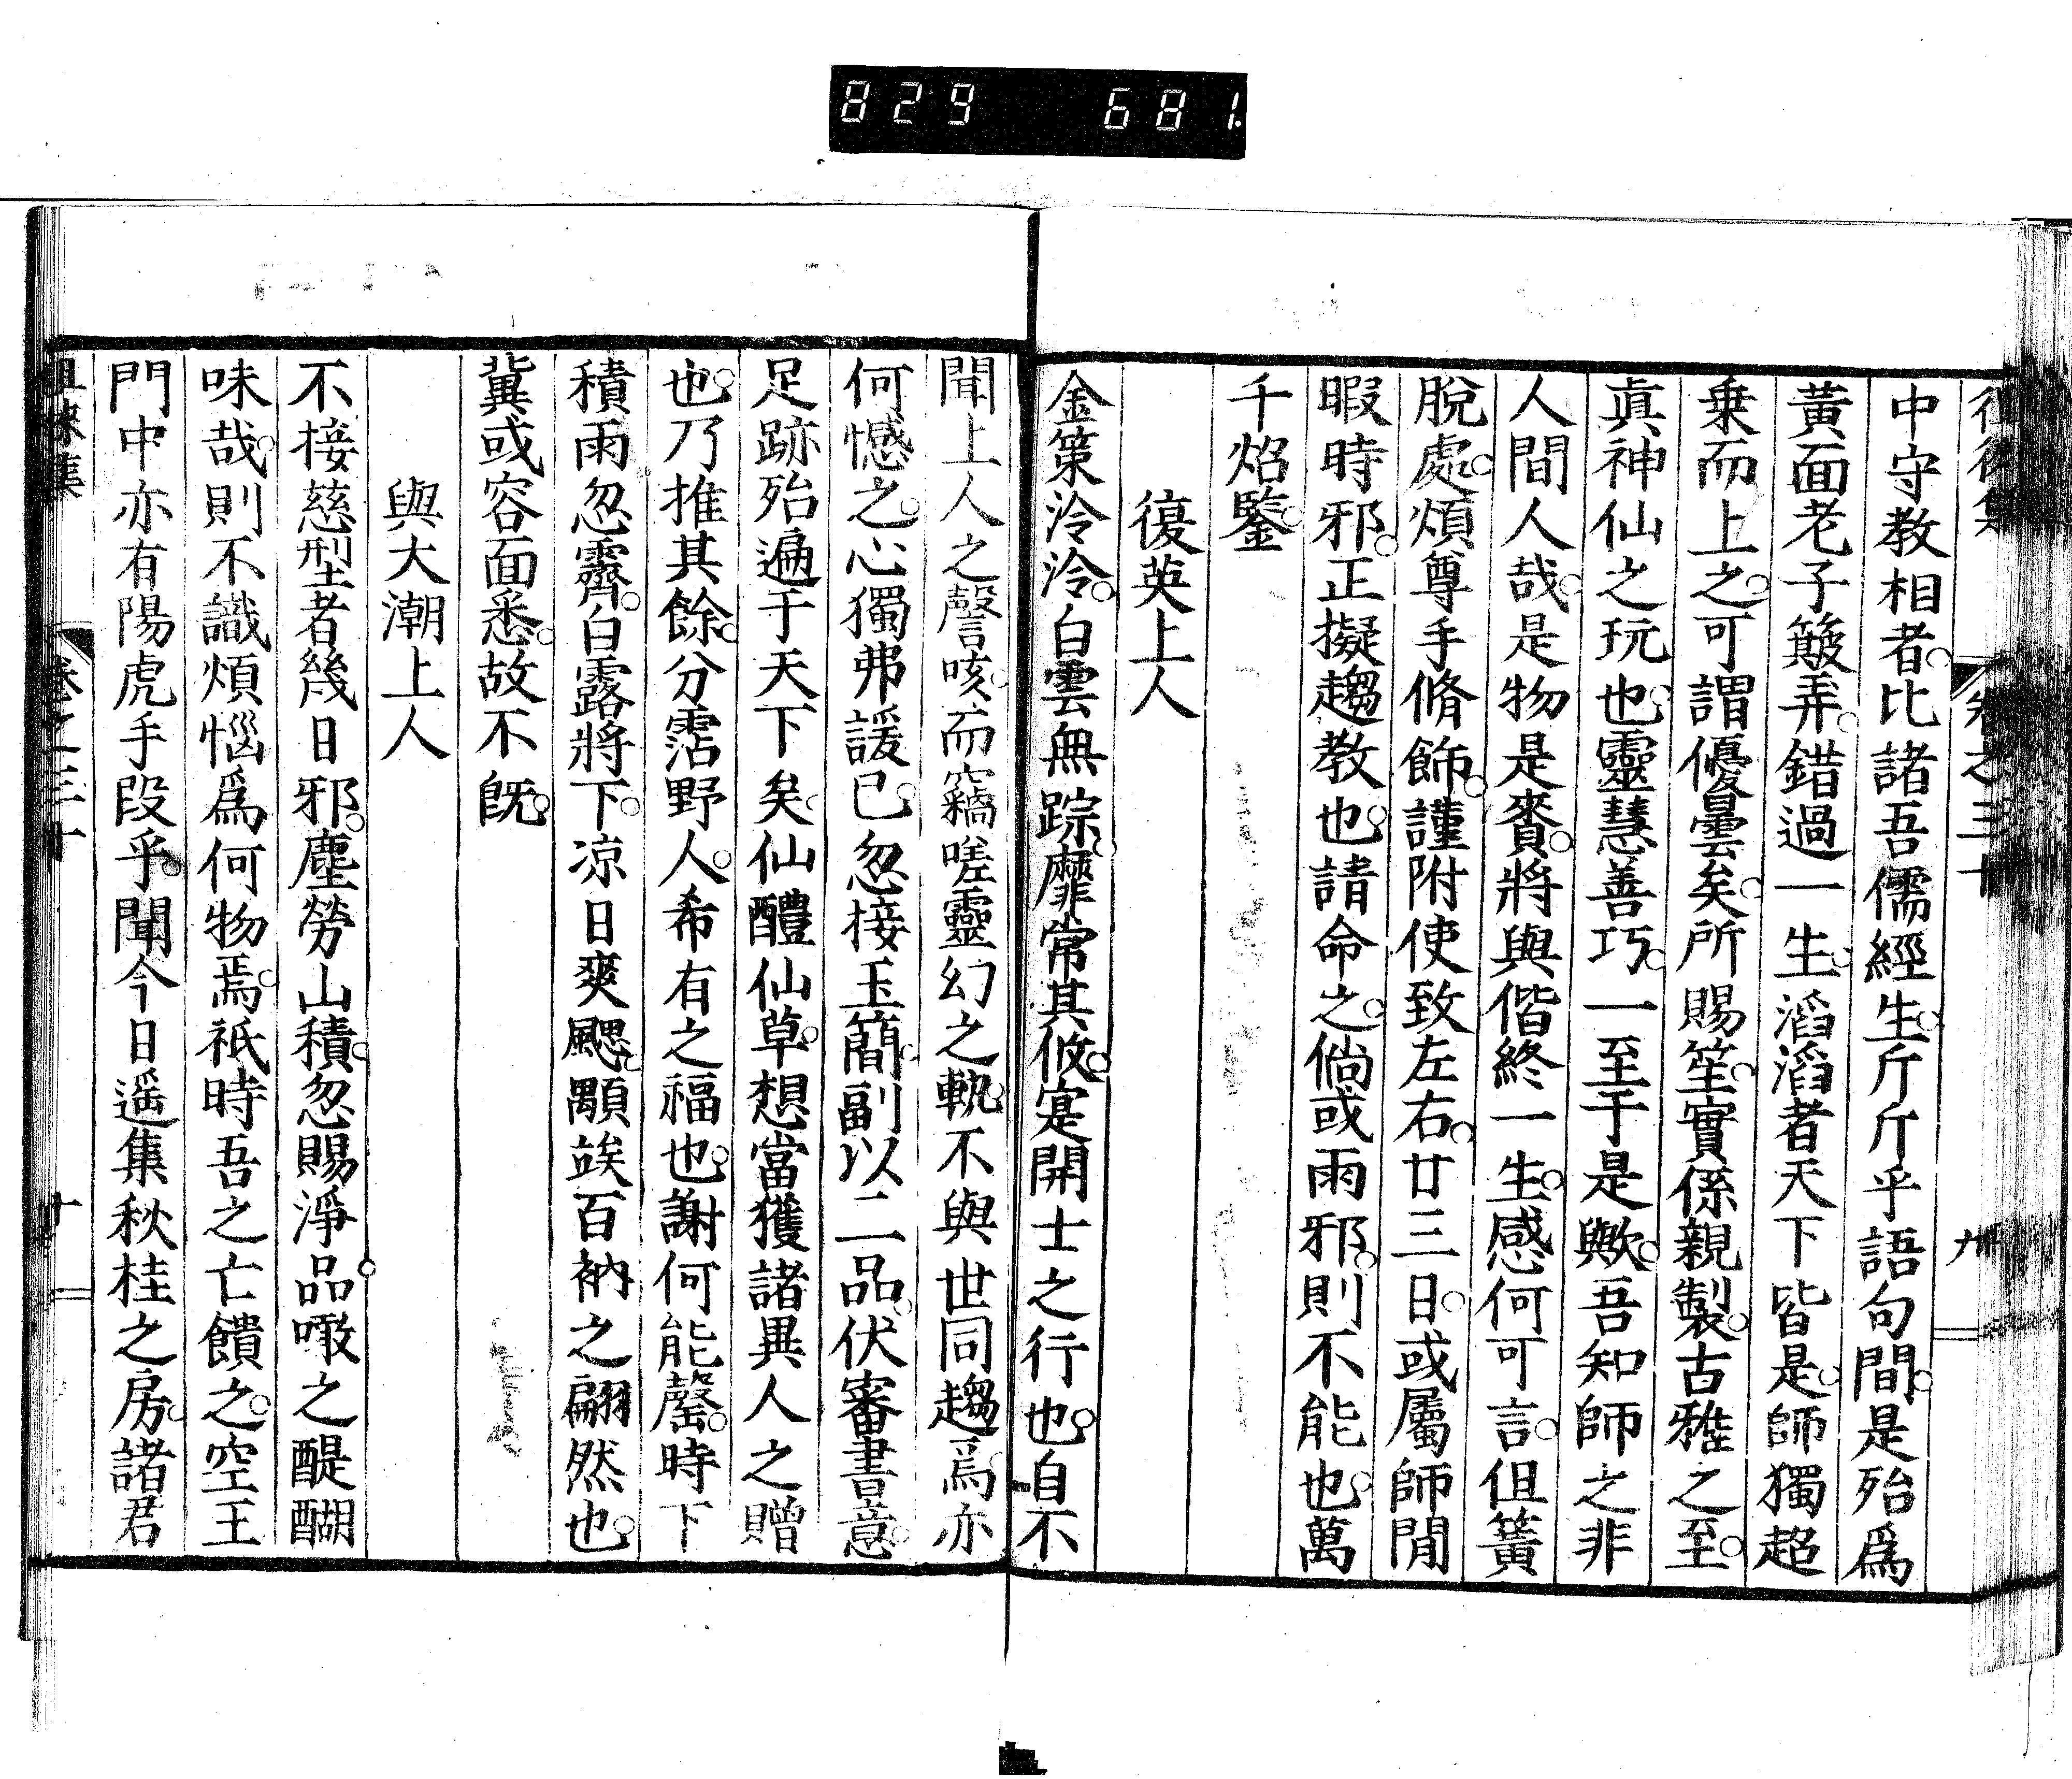 829 681.
徂徠集 卷之三十 九
中守教相者比諸吾儒經生斤斤乎語句間是殆爲
黃面老子簸弄錯過一生滔滔者天下皆是師獨超
乗而上之可謂優曇矣所賜笙實係親製古雅之至
眞神仙之玩也靈慧善巧一至于是歟吾知師之非
人間人哉是物是賚將與偕終一生感何可言但簧
脫處煩尊手脩飾謹附使致左右廿三日或屬師閒
暇時邪正擬趨教也請命之倘或雨邪則不能也萬
千炤鑒
復英上人
金策泠泠白雲無踪靡常其攸寔開士之行也自不
聞上人之謦咳而竊嗟靈幻之軌不與世同趨爲亦
何憾之心獨弗諼已忽接玉簡副以二品伏審書意
足跡殆遍于天下矣仙醴仙草想當獲諸異人之贈
也乃推其餘分霑野人希有之福也謝何能罄時下
積雨忽霽白露將下凉日爽颸顒竢百衲之翩然也
冀或容面悉故不既
與大潮上人
不接慈型者幾日邪塵勞山積忽賜淨品噉之醍醐
味哉則不識煩惱爲何物焉祇時吾之亡饋之空王
門中亦有陽虎手段乎聞今日遥集秋桂之房諸君
徂徠集 卷之三十 十